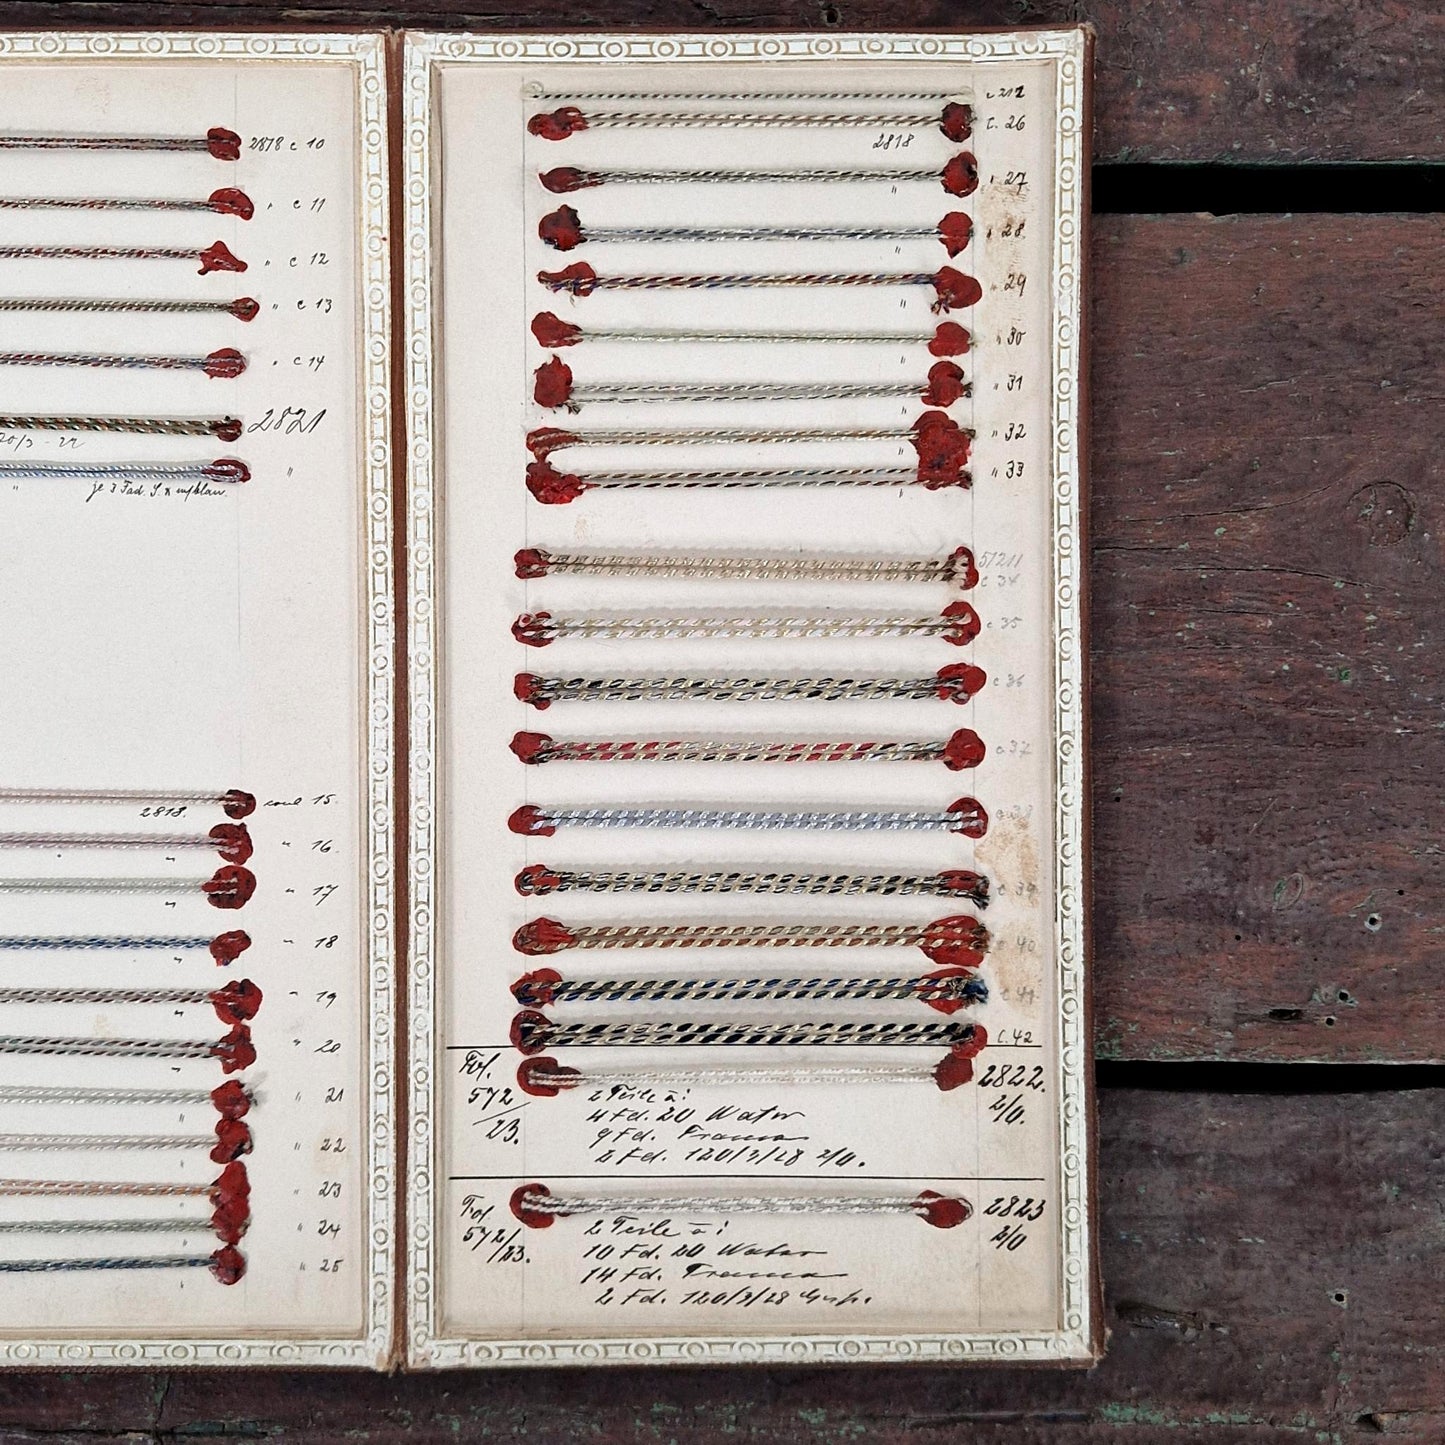 2818 c 10
" c 11
" c 12
" c 13
" c 14
2821
20/3 - 22
"
" je 3 Fad. S.
15.
2818.
" 16.
"
" 17
"
" 18
"
" 19
"
" 20
"
" 21
" 22
"
" 23
" 24
"
" 25
"
c 212
c. 26
2818
" 27
"
" 28
"
" 29
"
" 30
"
" 31
"
" 32
" 33
"
51211
c 34
c 35
c 36
c 37
c 38
c 39
c 40
c 41
c. 42
572/23.
2822.
2/0.
2 Teile à:
4 Fd. 20 Water
9 Fd. Trama
2 Fd. 120/3/28 2/0.
572/23.
2823
2/0
2 Teile à:
10 Fd. 20 Water
14 Fd. Trama
2 Fd. 120/3/28